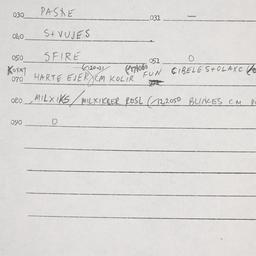 030 PASKE 031 —
040 S+VUJES
050 SFIRE 051 0
070 HARTE EJER/CM KOLIR FUN CIBELES+OLAKC
080 MILXIKS/MILXIKLER ROSL (/122050 BLINCES CM
090 0